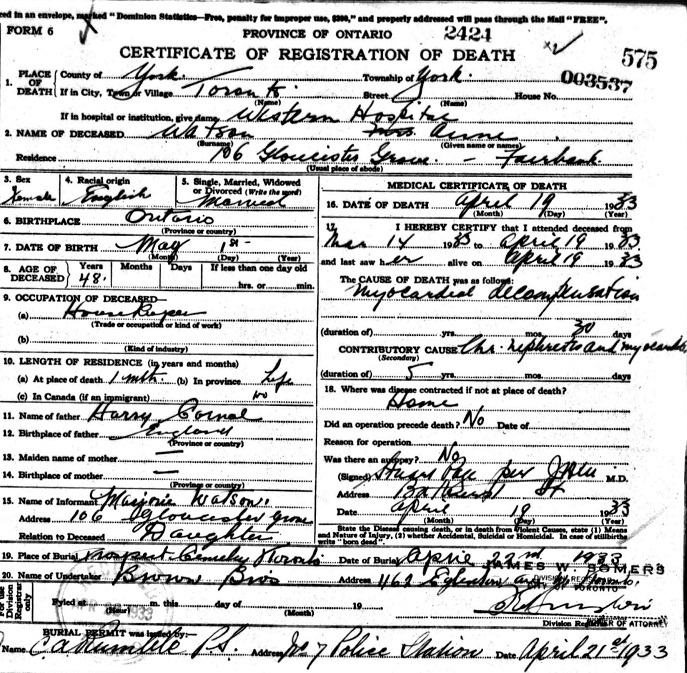 red in an envelope, marked "Dominion Statistics—Free, penalty for improper use, $300," and properly addressed will pass through the Mail "FREE".
FORM 6
PROVINCE OF ONTARIO 2424
CERTIFICATE OF REGISTRATION OF DEATH 575
003537
1. PLACE OF DEATH County of York Township of York
If in City, Town or Village Toronto Street House No.
(Name) (Name)
If in hospital or institution, give name Western Hospital
2. NAME OF DECEASED Watson Mrs. Anne
(Surname) (Given name or names)
Residence 106 Gloucester Grove - Fairbank
(Usual place of abode)
3. Sex Female
4. Racial origin English
5. Single, Married, Widowed or Divorced (Write the word) Married
6. BIRTHPLACE Ontario
(Province or country)
7. DATE OF BIRTH May 1st
(Month) (Day) (Year)
8. AGE OF DECEASED Years 48 Months Days If less than one day old
hrs. or min.
9. OCCUPATION OF DECEASED—
(a) Housekeeper
(Trade or occupation or kind of work)
(b)
(Kind of industry)
10. LENGTH OF RESIDENCE (in years and months)
(a) At place of death 1 mth. (b) In province life
(c) In Canada (if an immigrant)
11. Name of father Harry
12. Birthplace of father England
(Province or country)
13. Maiden name of mother —
14. Birthplace of mother —
(Province or country)
15. Name of Informant Marjorie Watson.
Address 106 Gloucester Grove
Relation to Deceased Daughter
MEDICAL CERTIFICATE OF DEATH
16. DATE OF DEATH April 19 1933
(Month) (Day) (Year)
17. I HEREBY CERTIFY that I attended deceased from
Mar 14 1933 to April 19 1933
and last saw her alive on April 19 1933
The CAUSE OF DEATH was as follows:
Myocardial decompensation
(duration of) yrs. mos. 30 days
CONTRIBUTORY CAUSE Chr. nephritis and myocarditis
(Secondary)
(duration of) 5 yrs. mos. days
18. Where was disease contracted if not at place of death?
Home
Did an operation precede death? No Date of
Reason for operation
Was there an autopsy? No
(Signed) per M.D.
Address Bathurst St
Date April 19 1933
(Month) (Day) (Year)
State the Disease causing death, or in death from Violent Causes, state (1) Means and Nature of Injury, (2) whether Accidental, Suicidal or Homicidal. In case of stillbirths write "born dead".
19. Place of Burial Prospect Cemetery Toronto Date of Burial April 22nd 1933
JAMES W. SOMERS
20. Name of Undertaker Brown Bros Address 1162 Eglinton
DIVISION REGISTRAR
CITY OF TORONTO
For use of Division Registrar only
Filed at m. this day of 19
(Hour) (Month)
Division Registrar
POWER OF ATTORNEY
BURIAL PERMIT was issued by:—
Name P.S. Address No 7 Police Station Date April 21st 1933